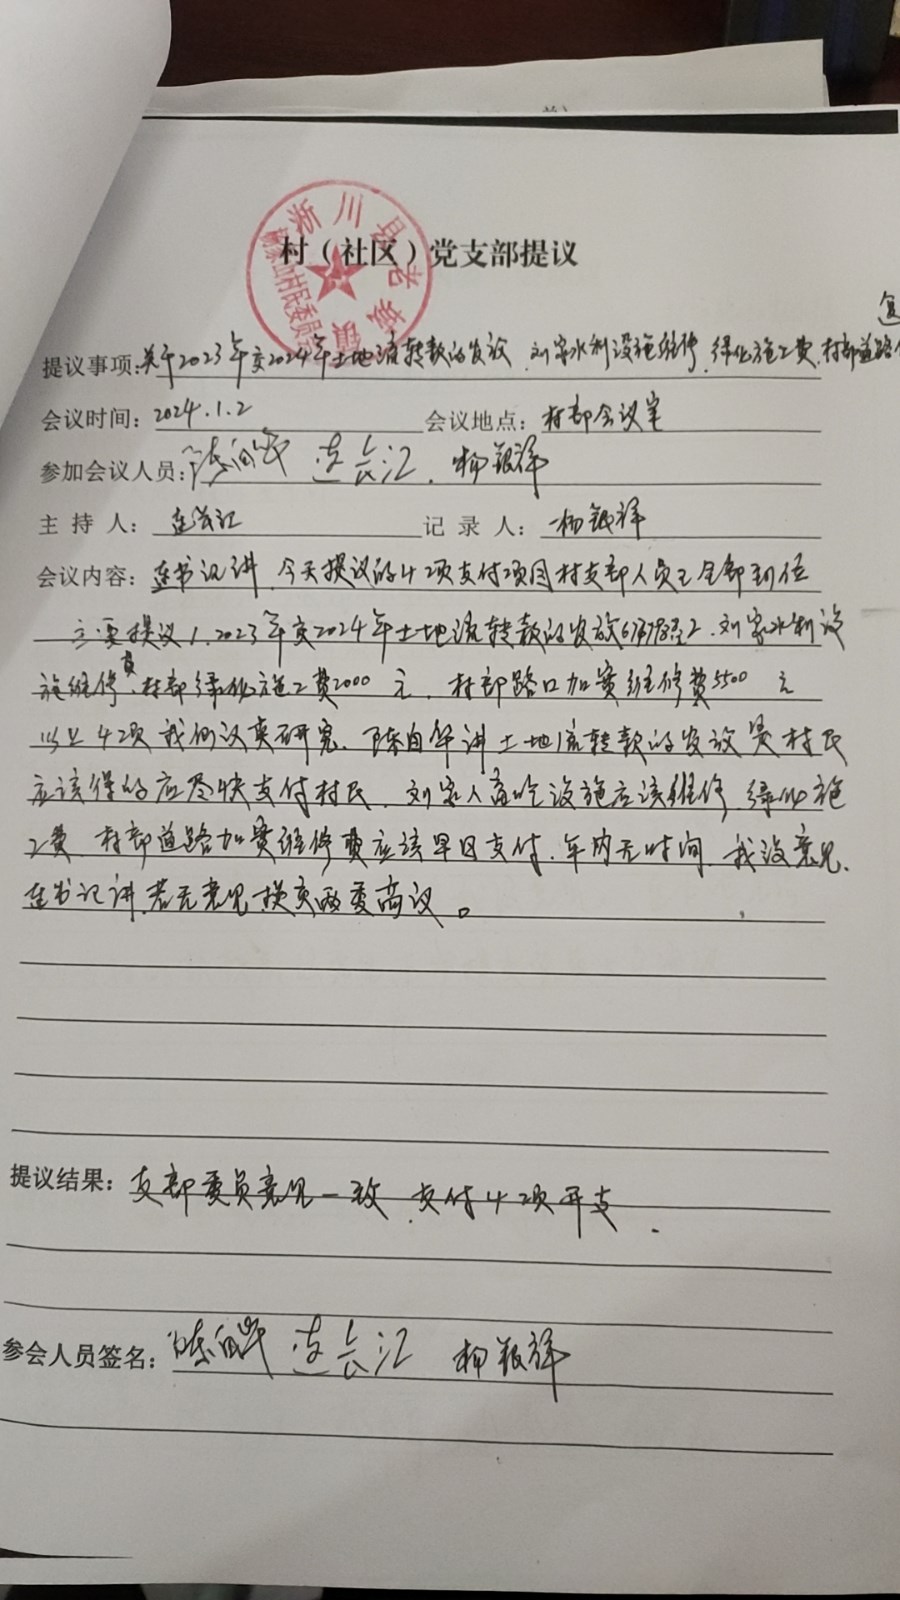 淅川县老城镇
村民委员会
村（社区）党支部提议
提议事项:关于2023年交2024年土地流转款的发放.刘家水利设施维修.绿化施工费.村部道路
会议时间: 2024.1.2 会议地点: 村部会议室
参加会议人员: 陈自华 连长江. 杨银祥
主 持 人: 连长江 记 录 人: 杨银祥
会议内容: 连书记讲.今天提议的4项支付项目村支部人员已全部到位
主要提议1.2023年交2024年土地流转款的发放 2.刘家水利设
施维修费.村部绿化施工费2000元.村部路口加宽维修费5500元
以上4项我们议真研究.陈自华讲土地流转款的发放是村民
应该得的应尽快支付村民.刘家人畜吃设施应该维修.绿化施
工费.村部道路加宽维修费应该早日支付.年内无时间.我没意见.
连书记讲.若无意见.提交两委商议。
提议结果: 支部委员意见一致.支付4项开支.
参会人员签名: 陈自华 连长江 杨银祥